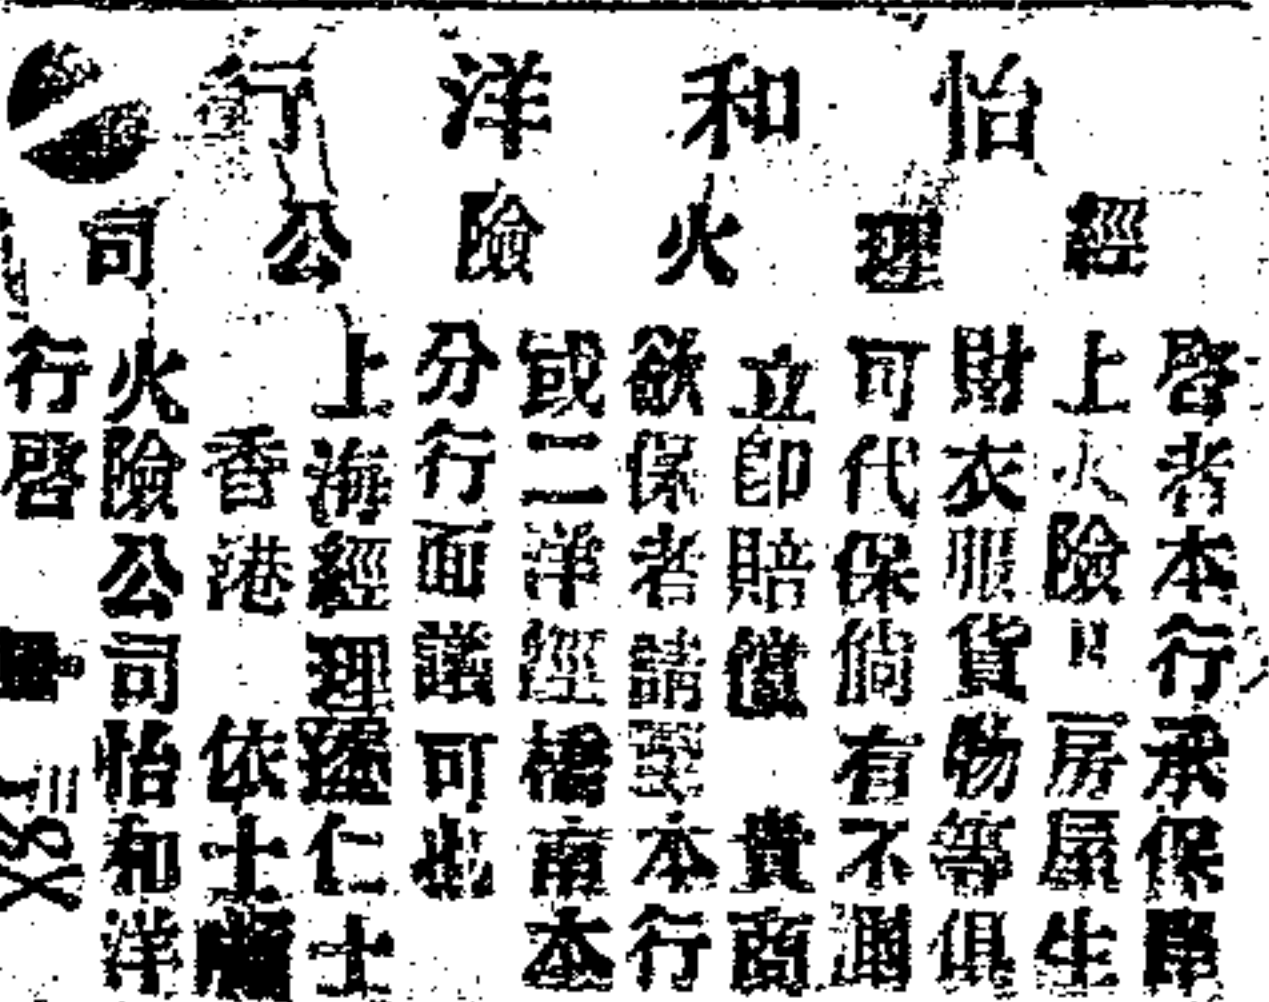 怡和洋行
經理火險公司
啓者本行承保單
上火險 房屋生
財衣服貨物等俱
可代保倘有不測
立卽賠償 貴商
欲保者請至本行
或二洋經橋南本
分行面議可也
上海經理 仁士
香港 依士
火險公司怡和洋
行啓